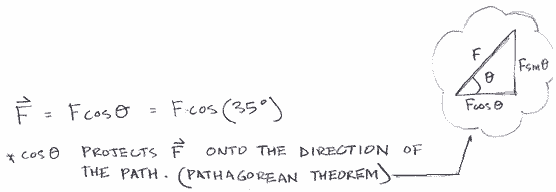 F
Fsinθ
θ
Fcosθ
F⃗ = Fcosθ = F·cos(35°)
* cosθ PROJECTS F⃗ ONTO THE DIRECTION OF
THE PATH. (PATHAGOREAN THEOREM)